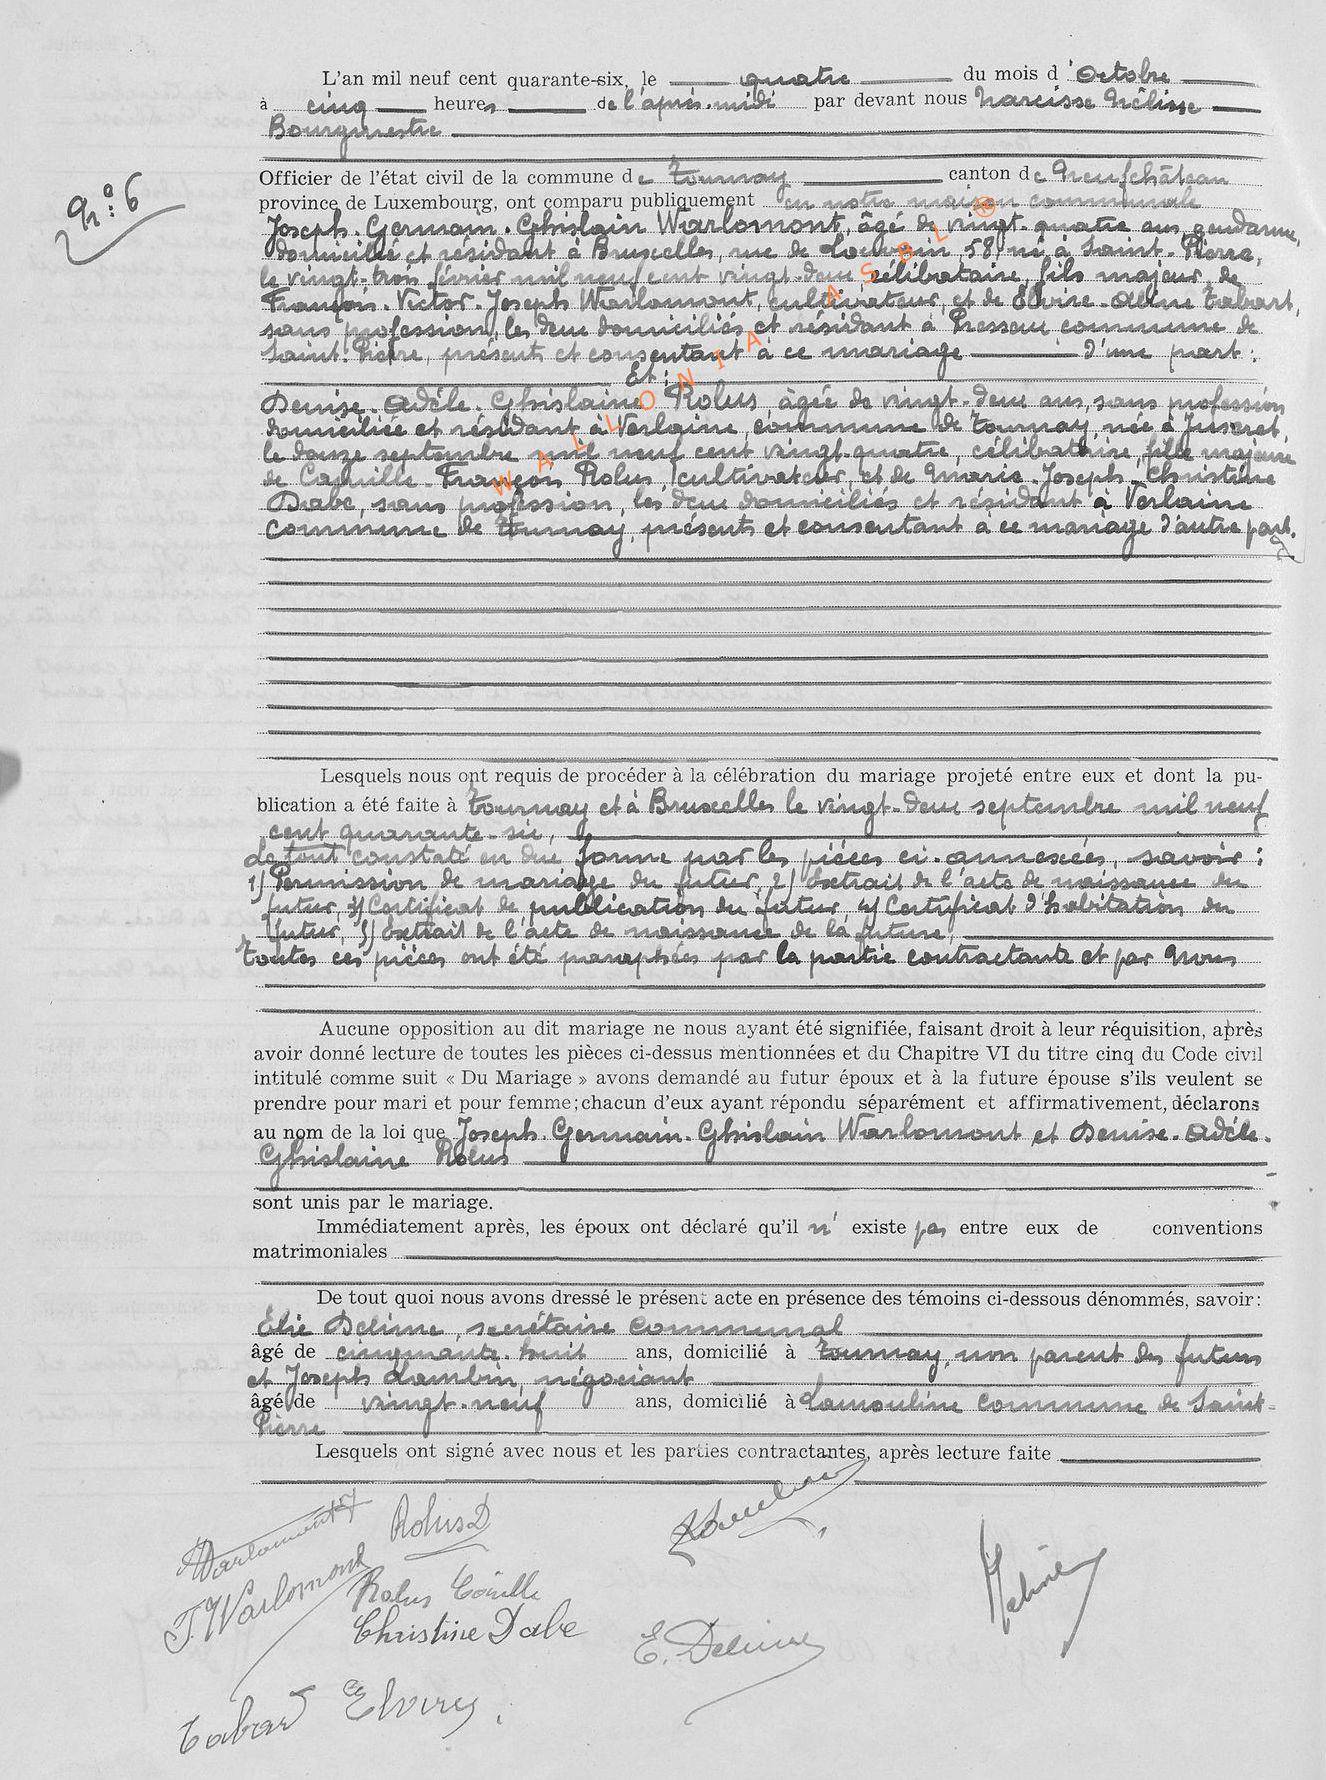 L'an mil neuf cent quarante-six, le quatre du mois d'Octobre
à cinq heures de l'après-midi par devant nous Narcisse Hélisse
Bourgmestre
N° 6
Officier de l'état civil de la commune de Tournay canton de Neufchâteau
province de Luxembourg, ont comparu publiquement en notre maison communale
Joseph-Germain-Ghislain Warlomont, âgé de vingt-quatre ans, gendarme,
domicilié et résidant à Bruxelles, rue de Louvain, 58, né à Saint-Pierre,
le vingt-trois février mil neuf cent vingt-deux, célibataire, fils majeur de
François-Victor-Joseph Warlomont, cultivateur, et de Elvire-Aline Tabart,
sans profession, les deux domiciliés et résidant à Presseux commune de
Saint-Pierre, présents et consentant à ce mariage d'une part:
Et:
Denise-Adèle-Ghislaine Rolus âgée de vingt-deux ans, sans profession
domiciliée et résidant à Verlaine, commune de Tournay, née à Juseret,
le douze septembre mil neuf cent vingt-quatre, célibataire, fille majeure
de Camille-François Rolus, cultivateur, et de Marie-Joseph-Christine
Dabe, sans profession, les deux domiciliés et résidant à Verlaine
commune de Tournay, présents et consentant à ce mariage d'autre part.
WALLONIA ASBL ®
Lesquels nous ont requis de procéder à la célébration du mariage projeté entre eux et dont la pu-
blication a été faite à Tournay et à Bruxelles le vingt-deux septembre mil neuf
cent quarante-six,
Le tout constaté en due forme par les pièces ci-annexées, savoir:
1) Permission de mariage du futur, 2) Extrait de l'acte de naissance du
futur, 3) Certificat de publication du futur, 4) Certificat d'habitation du
futur, 5) Extrait de l'acte de naissance de la future,
Toutes ces pièces ont été paraphées par la partie contractante et par Nous
Aucune opposition au dit mariage ne nous ayant été signifiée, faisant droit à leur réquisition, après
avoir donné lecture de toutes les pièces ci-dessus mentionnées et du Chapitre VI du titre cinq du Code civil
intitulé comme suit « Du Mariage » avons demandé au futur époux et à la future épouse s'ils veulent se
prendre pour mari et pour femme; chacun d'eux ayant répondu séparément et affirmativement, déclarons
au nom de la loi que Joseph-Germain-Ghislain Warlomont et Denise-Adèle-
Ghislaine Rolus
sont unis par le mariage.
Immédiatement après, les époux ont déclaré qu'il n'existe pas entre eux de conventions
matrimoniales
De tout quoi nous avons dressé le présent acte en présence des témoins ci-dessous dénommés, savoir:
Elie Delime, secrétaire communal
âgé de cinquante-huit ans, domicilié à Tournay, non parent des futurs
et Joseph Lambin, négociant
âgé de vingt-neuf ans, domicilié à Lamouline commune de Saint-
Pierre
Lesquels ont signé avec nous et les parties contractantes, après lecture faite
Warlomont Rolus D
J. Warlomont Rolus Camille
Christine Dabe
E. Delime
Tabart Elvire